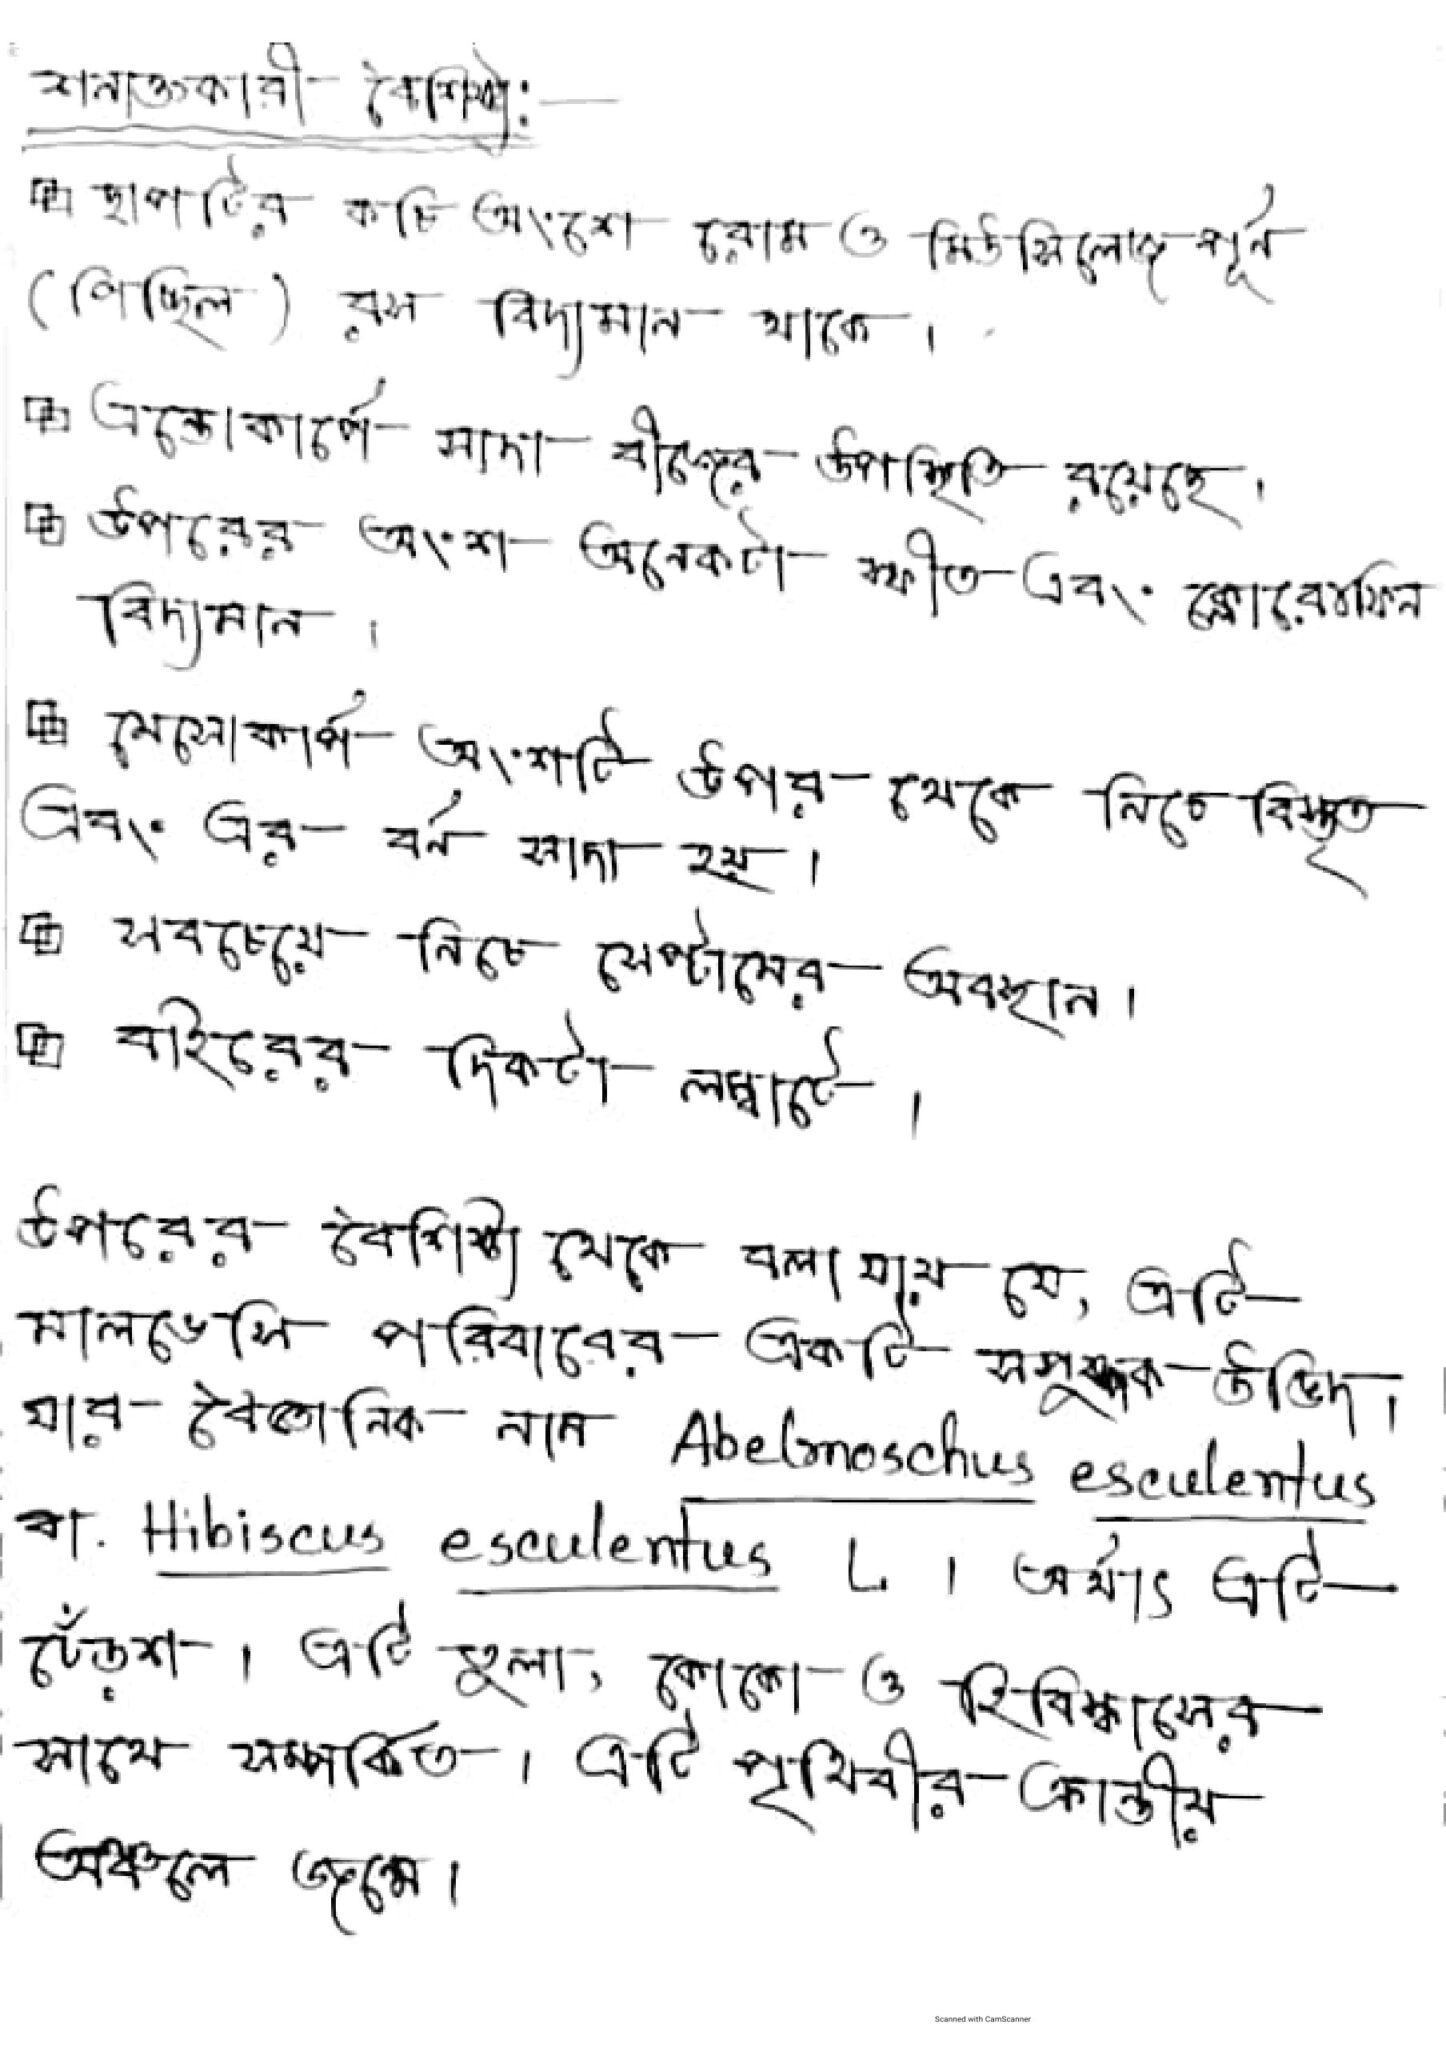 শনাক্তকারী বৈশিষ্ট্য:—
স্থাপটির কচি অংশে রোম ও মিউসিলেজ পূর্ন
(পিচ্ছিল) রস বিদ্যমান থাকে।
এন্ডোকার্পে সাদা বীজের উপস্থিতি রয়েছে।
উপরের অংশ অনেকটা স্ফীত এবং
বিদ্যমান।
মেসোকার্প অংশটি উপর থেকে নিচে বিস্তৃত
এবং এর বর্ন সাদা হয়।
সবচেয়ে নিচে সেপ্টামের অবস্থান।
বাইরের দিকটা লম্বাটে।
উপরের বৈশিষ্ট্য থেকে বলা যায় যে, এটি
মালভেসি পরিবারের একটি সপুষ্পক উদ্ভিদ।
যার বৈজ্ঞানিক নাম Abelmoschus esculentus
বা. Hibiscus esculentus L. । অর্থাৎ এটি
ঢেঁড়শ। এটি তুলা, কোকো ও হিবিস্কাসের
সাথে সম্পর্কিত। এটি পৃথিবীর ক্রান্তীয়
অঞ্চলে জন্মে।
Scanned with CamScanner